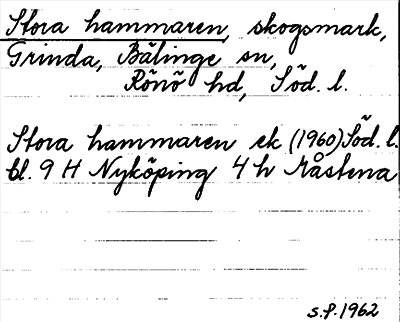 Stora hammaren, skogsmark,
Grinda, Bälinge sn,
Rönö hd, Söd. l.
Stora hammaren ek (1960) Söd. l.
bl. 9 H Nyköping 4 h Råstena
s.f. 1962